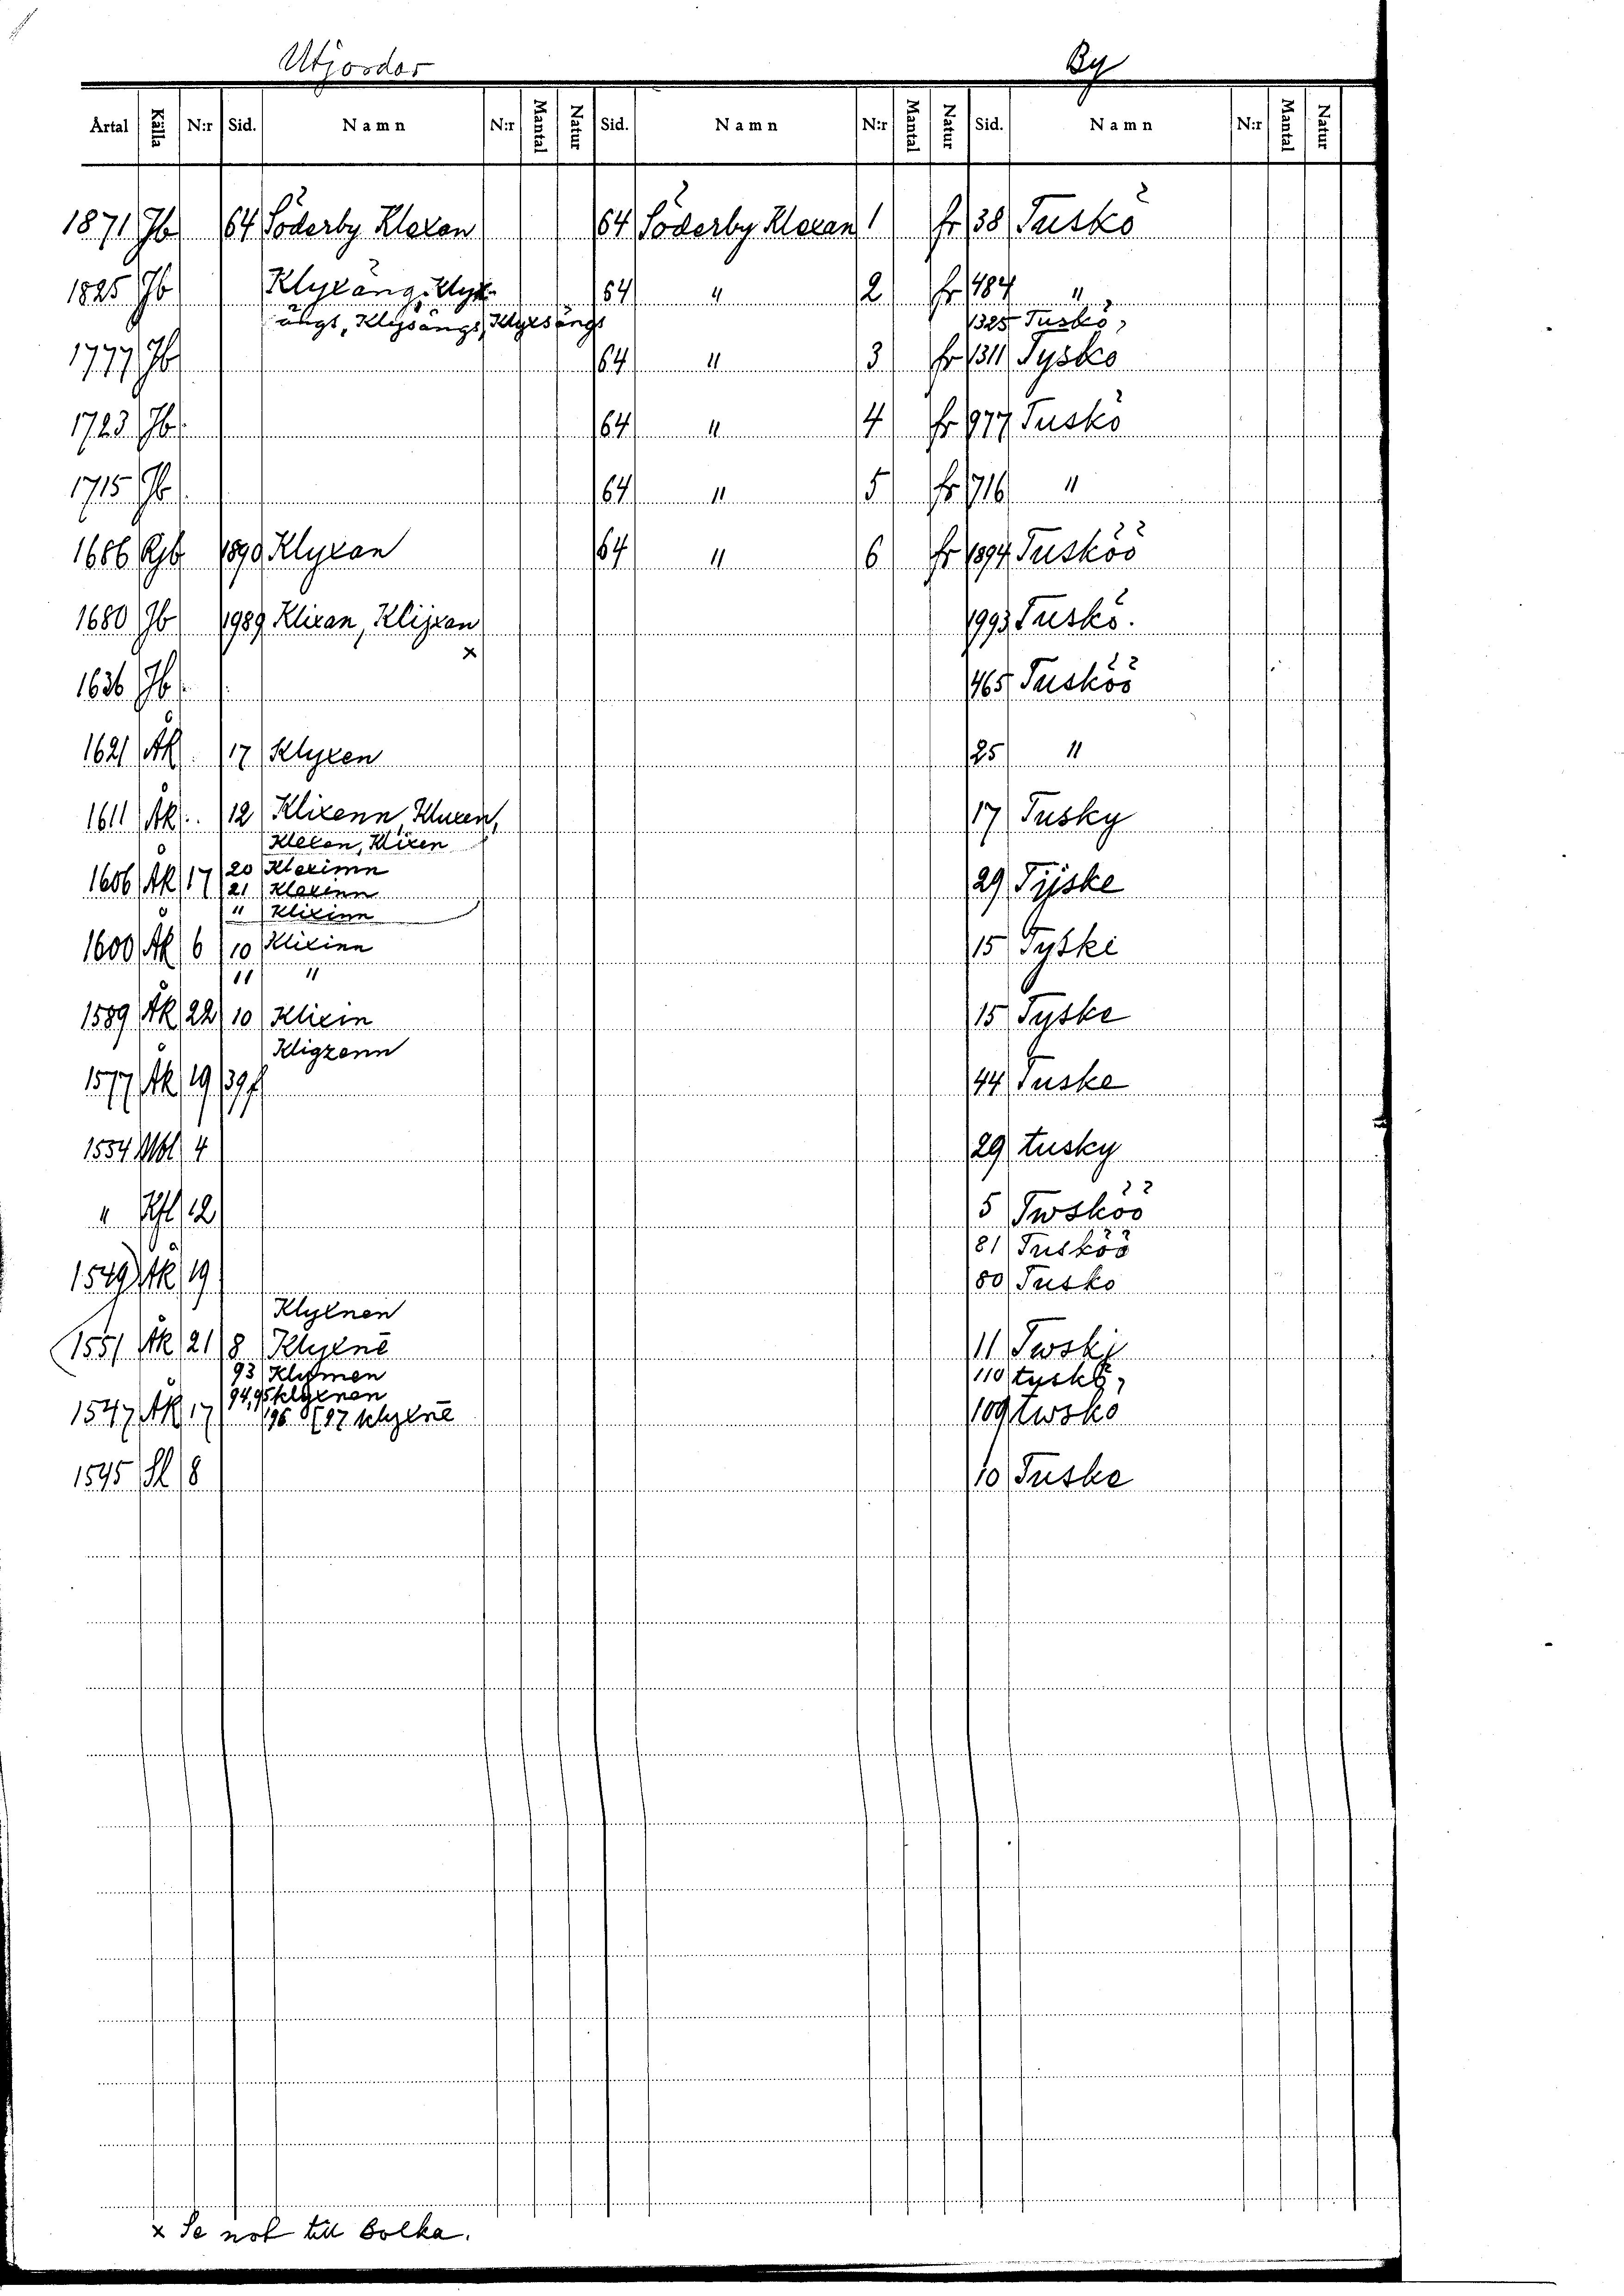 Utjordar By
Årtal Källa N:r Sid. Namn N:r Mantal Natur Sid. Namn N:r Mantal Natur Sid. Namn N:r Mantal Natur
1871 Jb 64 Söderby Klexan 64 Söderby Klexan 1 fr 38 Tuskö
1825 Jb Klyxäng, Klyx- 64 " 2 fr 484 "
ängs, Klysängs, Klyxsängs 1325 Tuskö,
1777 Jb 64 " 3 fr 1311 Tysko
1723 Jb 64 " 4 fr 977 Tuskö
1715 Jb 64 " 5 fr 716 "
1686 Rjb 1890 Klyxan 64 " 6 fr 1894 Tusköö
1680 Jb 1989 Klixan, Klijxan 1993 Tuskö.
x
1636 Jb 465 Tusköö
1621 Åk 17 Klyxen 25 "
1611 Åk 12 Klixenn, Kluxen, 17 Tusky
Klexen, Klixen
20 Klexinn
1606 Åk 17 21 Klexinn 29 Tijske
" Klixinn
1600 Åk 6 10 Klixinn 15 Tyski
11 "
1589 Åk 22 10 Klixin 15 Tyske
Kligzenn
1577 Åk 19 39f 44 Tuske
1554 Mbl 4 29 tusky
" Kfl 12 5 Twsköö
81 Tusköö
1549 Åk 19 80 Tusko
Klyxnen
1551 Åk 21 8 Klyxnē 11 Twskj
93 110 tuskö,
94, 95 klyxnen
1547 Åk 17 96 [97 klyxnē 109 twsko
1545 Sl 8 10 Tuske
x Se not till Bolka.